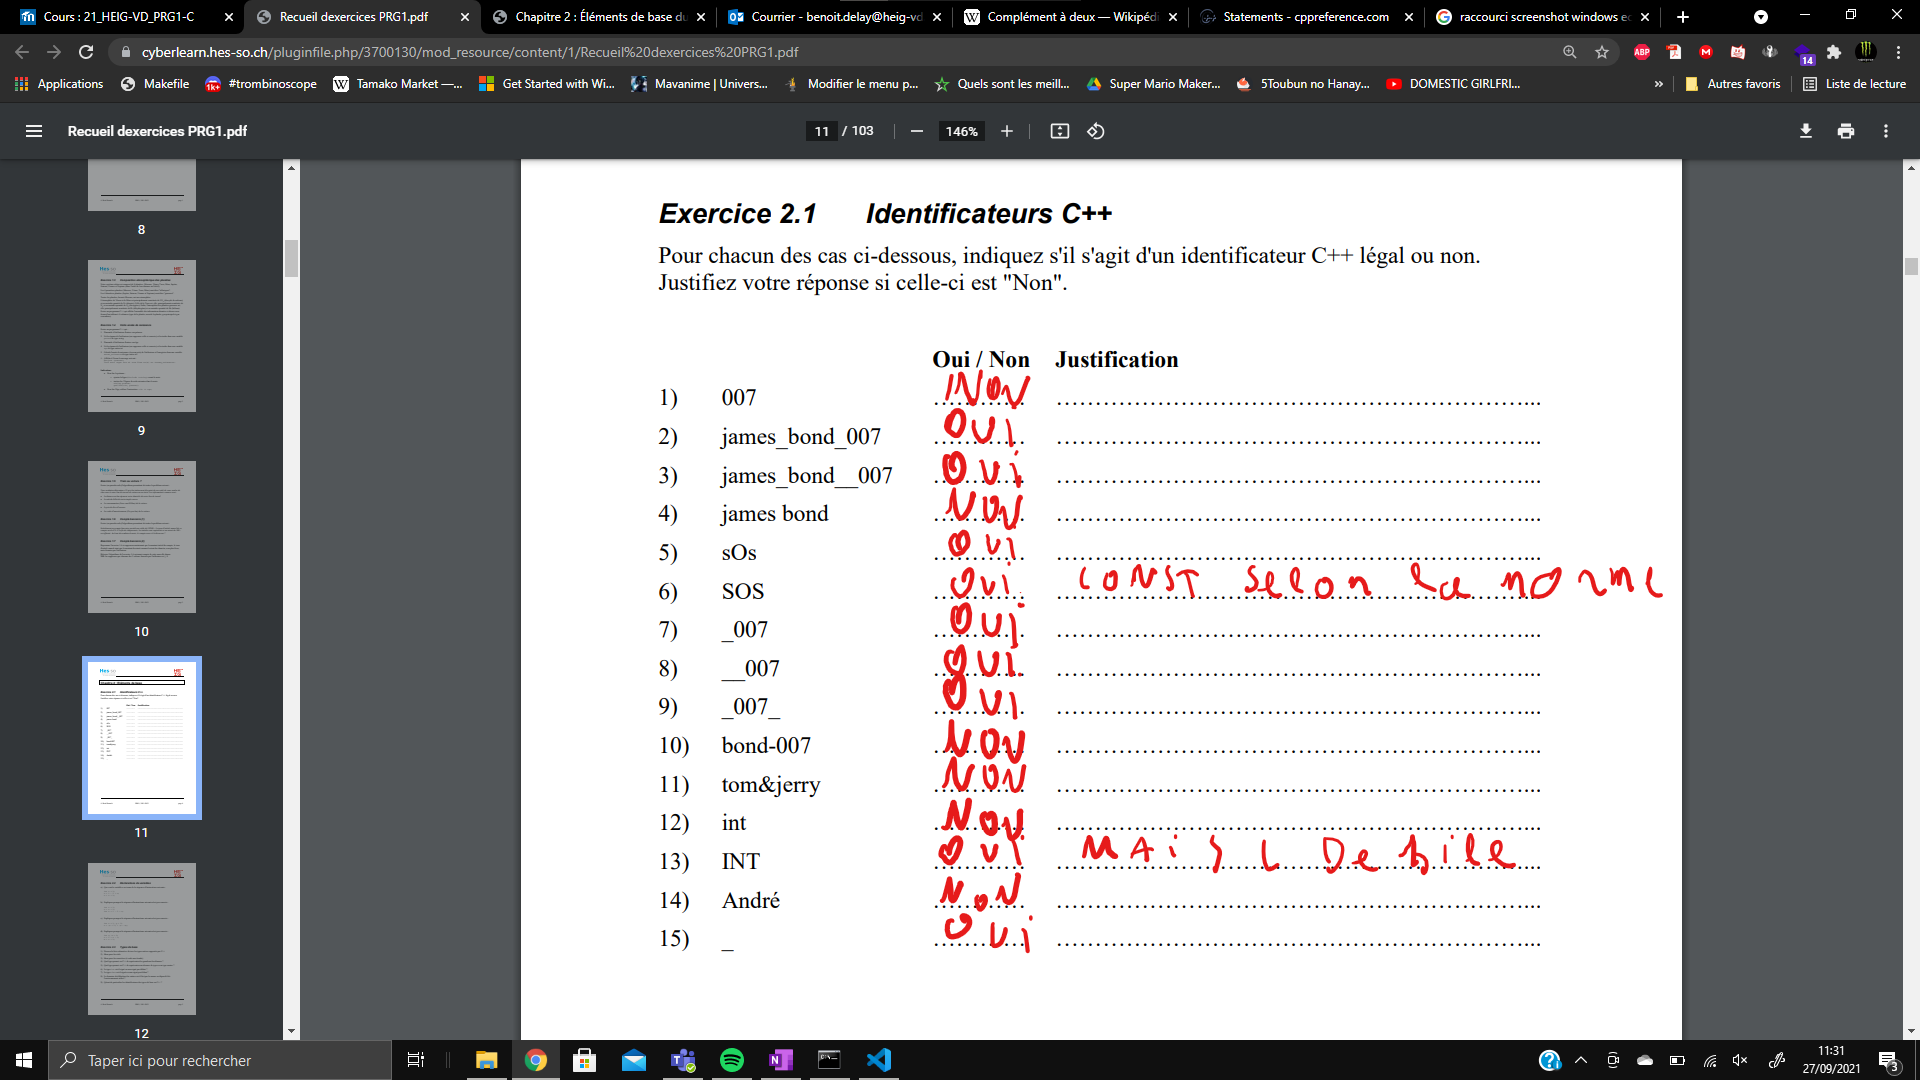 Cours : 21_HEIG-VD_PRG1-C
Recueil dexercices PRG1.pdf
Chapitre 2 : Éléments de base du
Courrier - benoit.delay@heig-vd
Complément à deux — Wikipédi
Statements - cppreference.com
raccourci screenshot windows ec
cyberlearn.hes-so.ch/pluginfile.php/3700130/mod_resource/content/1/Recueil%20dexercices%20PRG1.pdf
ABP
14
Applications
Makefile
1k+
#trombinoscope
Tamako Market —...
Get Started with Wi...
Mavanime | Univers...
Modifier le menu p...
Quels sont les meill...
Super Mario Maker...
5Toubun no Hanay...
DOMESTIC GIRLFRI...
»
Autres favoris
Liste de lecture
Recueil dexercices PRG1.pdf
11 / 103
146%
8
9
10
11
12
Exercice 2.1 Identificateurs C++
Pour chacun des cas ci-dessous, indiquez s'il s'agit d'un identificateur C++ légal ou non.
Justifiez votre réponse si celle-ci est "Non".
Oui / Non Justification
1) 007 NON
2) james_bond_007 OUI
3) james_bond__007 OUi
4) james bond NON
5) sOs OUI
6) SOS OUi CONST selon la norme
7) _007 OUi
8) __007 OUI
9) _007_ OUI
10) bond-007 NON
11) tom&jerry NON
12) int NON
13) INT OUi MAiS C Debile
14) André NON
15) _ OUi
Taper ici pour rechercher
11:31
27/09/2021
3